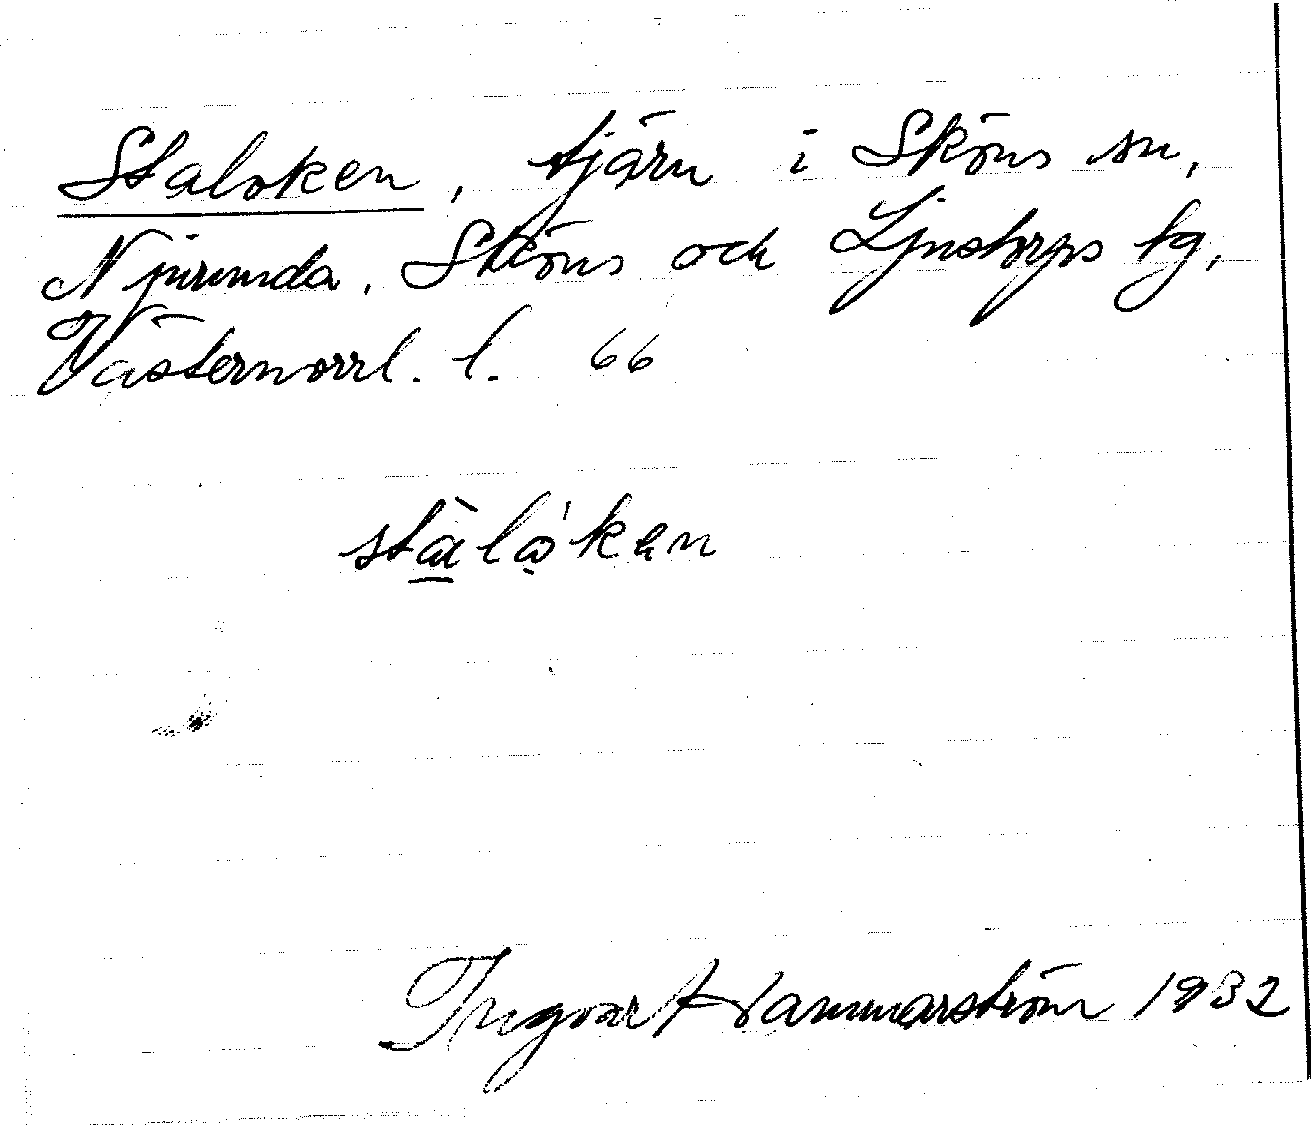 Staloken, tjärn i Sköns sn,
Njurunda, Sköns och Ljustorps tg,
Västernorrl. l. 66
Ingvar Hammarström 1932